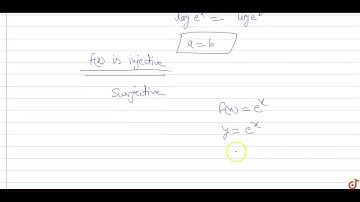 log e^a = log e^b
a = b
f(x) is injective
Surjective
f(x) = e^x
y = e^x